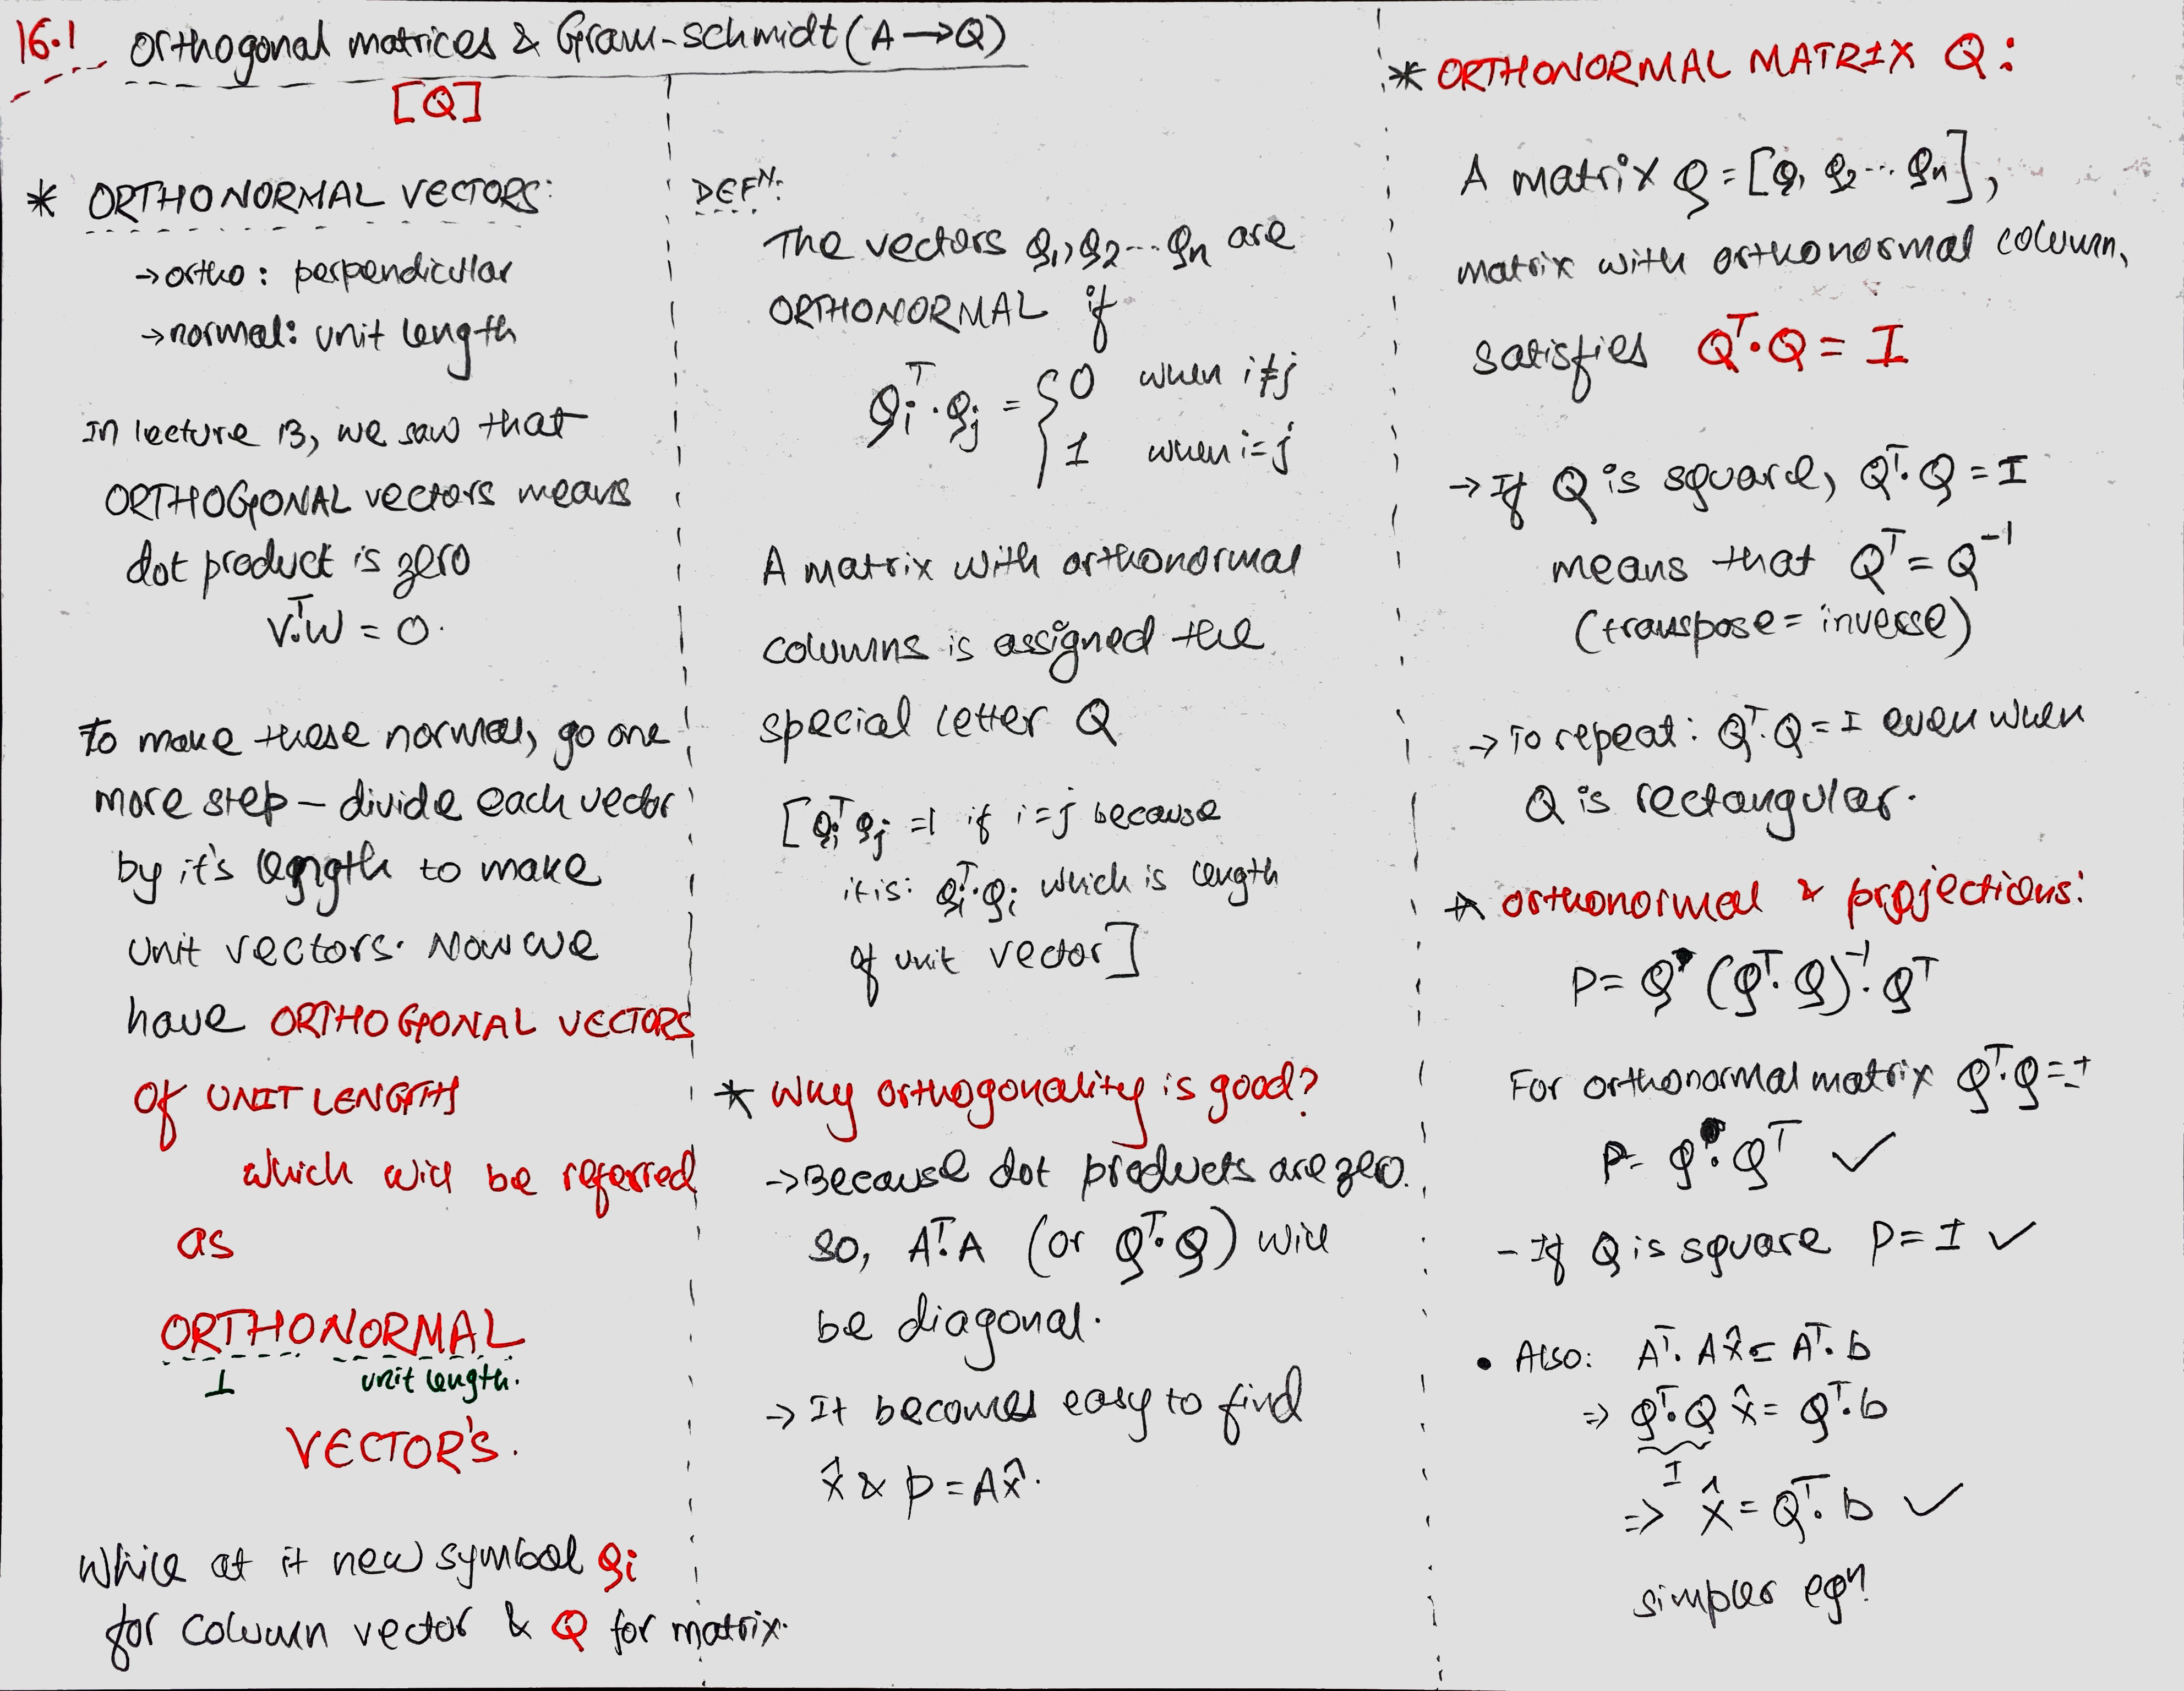 16.1 Orthogonal matrices & Gram-schmidt (A→Q)
[Q]
* ORTHONORMAL VECTORS:
→ ortho : perpendicular
→ normal: unit length
In lecture 13, we saw that
ORTHOGONAL vectors means
dot product is zero
Vᵀ.W = 0.
To make these normal, go one
more step – divide each vector
by it's length to make
unit vectors. Now we
have ORTHOGONAL VECTORS
of UNIT LENGTH
which will be referred
as
ORTHONORMAL
⊥ unit length.
VECTOR'S.
While at it new symbol qᵢ
for column vector & Q for matrix.
DEFᴺ:
The vectors q₁, q₂ ... qₙ are
ORTHONORMAL if
qᵢᵀ.qⱼ = { 0 when i≠j
1 when i=j
A matrix with orthonormal
columns is assigned the
special letter Q
[qᵢᵀqⱼ =1 if i=j because
it is: qᵢᵀ.qᵢ which is length
of unit vector]
* Why orthogonality is good?
→ Because dot products are zero.
So, Aᵀ.A (or Qᵀ.Q) will
be diagonal.
→ It becomes easy to find
x̂ & p = Ax̂.
* ORTHONORMAL MATRIX Q:
A matrix Q = [q₁ q₂ ... qₙ],
matrix with orthonormal column,
satisfies Qᵀ.Q = I
→ If Q is square, Qᵀ.Q = I
means that Qᵀ = Q⁻¹
(transpose = inverse)
→ To repeat: Qᵀ.Q = I even when
Q is rectangular.
* orthonormal & projections:
P = Q (Qᵀ.Q)⁻¹.Qᵀ
For orthonormal matrix Qᵀ.Q = I
P = Q.Qᵀ ✓
- If Q is square P = I ✓
• Also: Aᵀ.Ax̂ = Aᵀ.b
⇒ Qᵀ.Q x̂ = Qᵀ.b
I
⇒ x̂ = Qᵀ.b ✓
simpler eqⁿ.